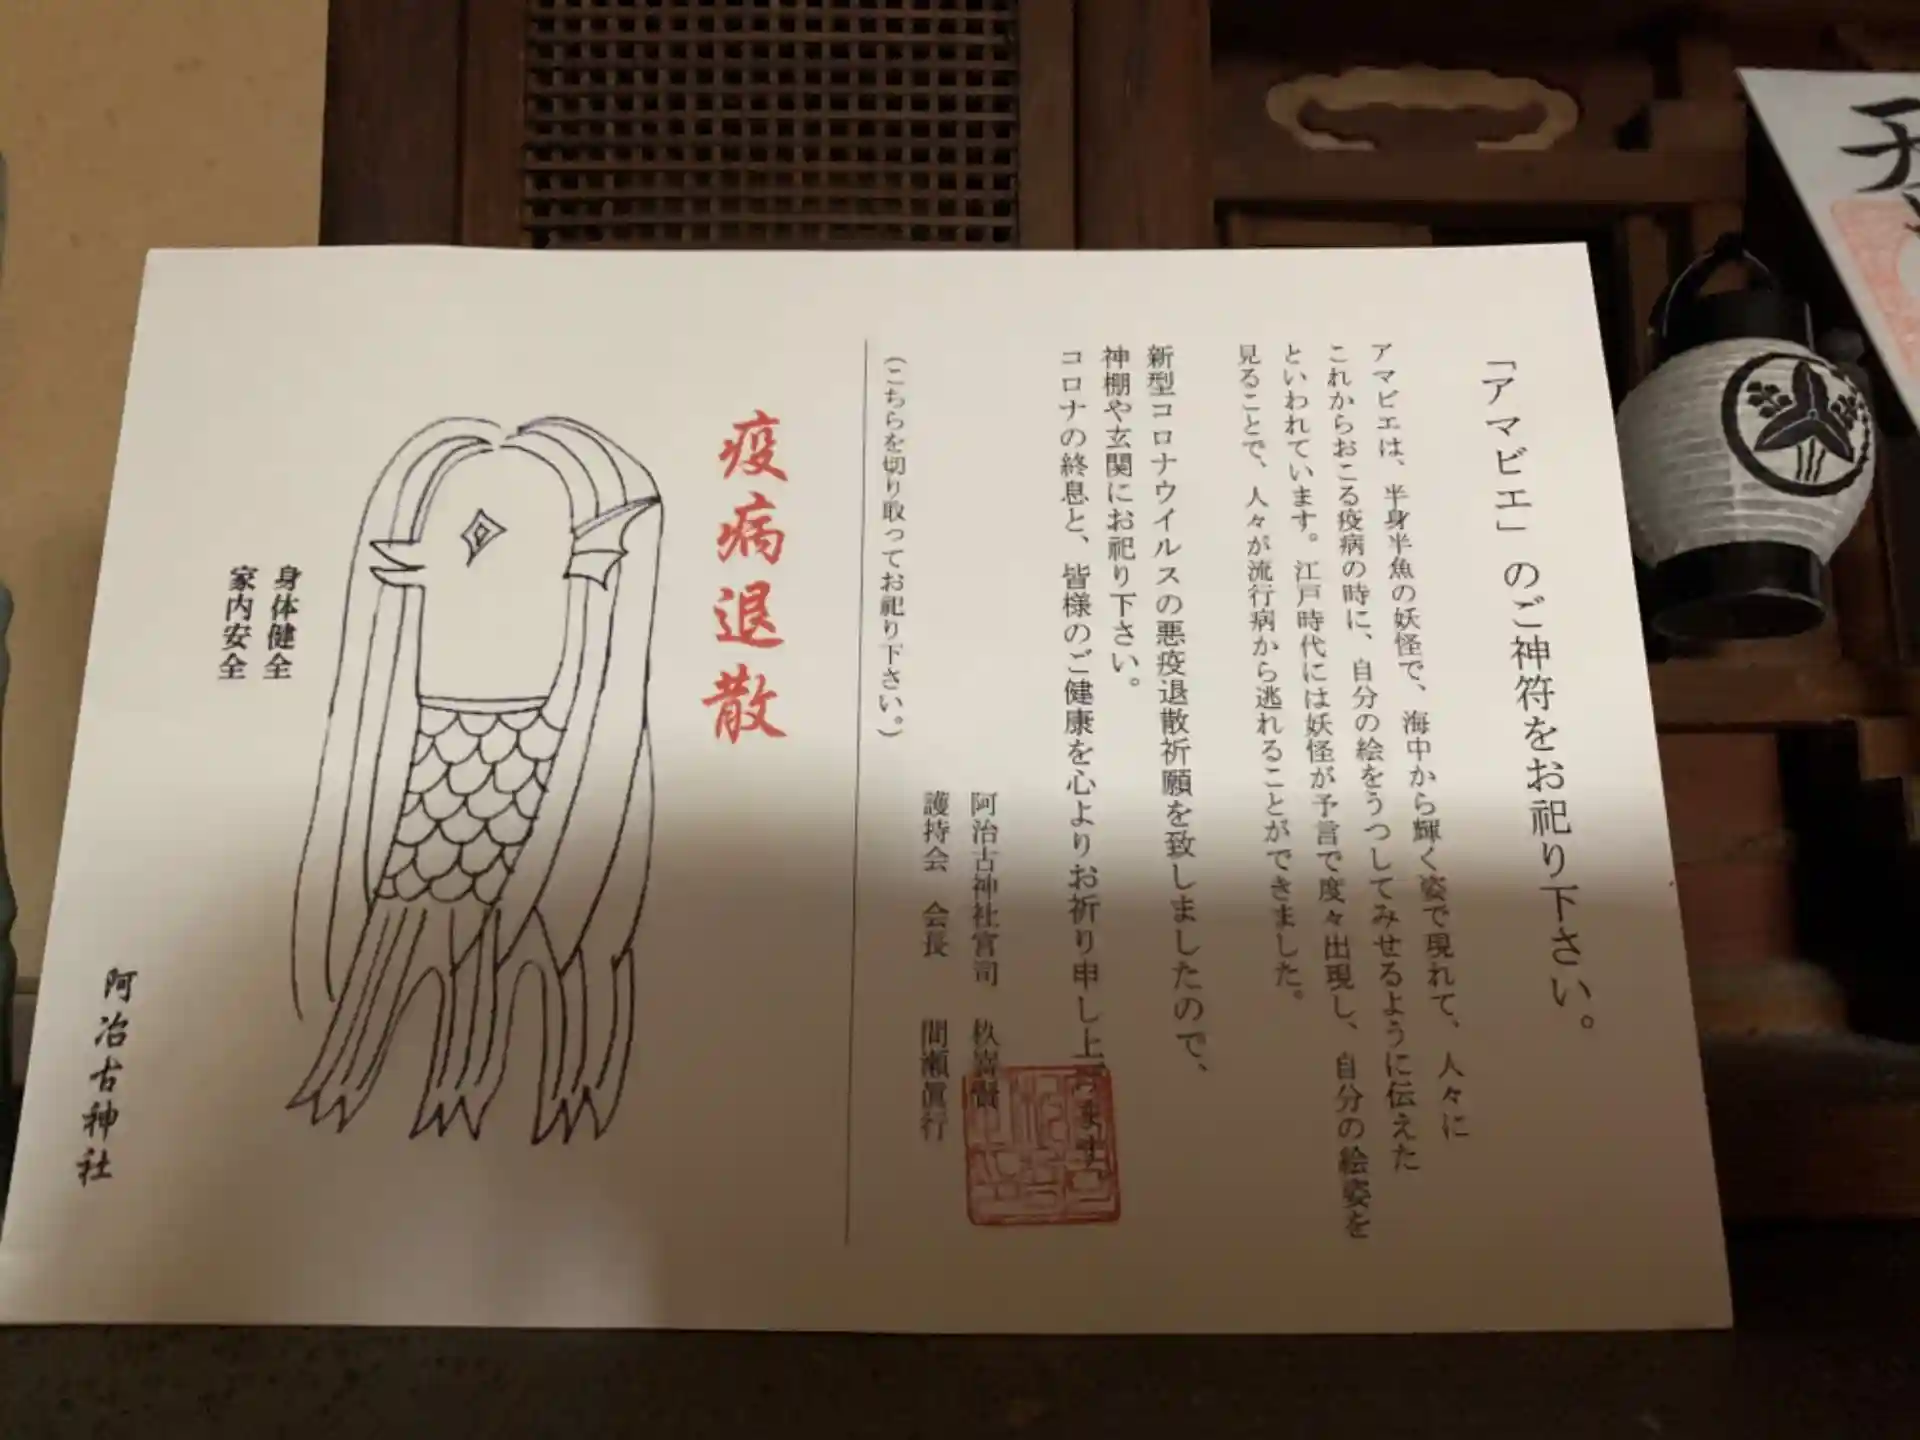 「アマビエ」のご神符をお祀り下さい。
アマビエは、半身半魚の妖怪で、海中から輝く姿で現れて、人々に
これからおこる疫病の時に、自分の絵をうつしてみせるように伝えた
といわれています。江戸時代には妖怪が予言で度々出現し、自分の絵姿を
見ることで、人々が流行病から逃れることができました。
新型コロナウイルスの悪疫退散祈願を致しましたので、
神棚や玄関にお祀り下さい。
コロナの終息と、皆様のご健康を心よりお祈り申し上げます。
阿治古神社宮司
護持会 会長 間瀬眞行
(こちらを切り取ってお祀り下さい。)
疫病退散
身体健全
家内安全
阿治古神社